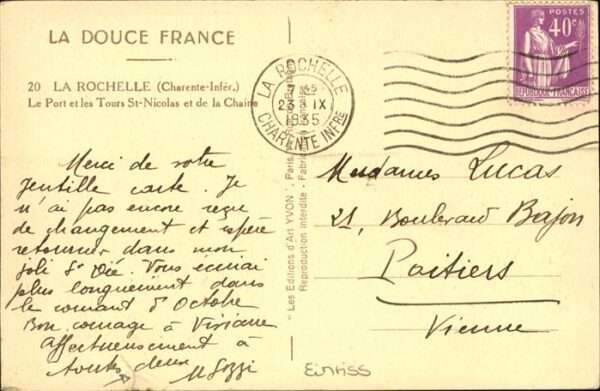 LA DOUCE FRANCE
20 LA ROCHELLE (Charente-Infér.)
Le Port et les Tours St-Nicolas et de la Chaine
Merci de votre
gentille carte. Je
n'ai pas encore reçu
de changement et espère
retourner dans mon
joli St Dié. Vous écrirai
plus longuement dans
le courant d'Octobre
Bon courage à Viviane
Affectueusement à
toutes deux
"Les Editions d'Art YVON", Paris,
Reproduction interdite - Fabrication
LA ROCHELLE
23 IX
1935
CHARENTE INFRE
POSTES
40c
REPUBLIQUE FRANÇAISE
Mesdames Lucas
21, Boulevard Bajon
Poitiers
Vienne